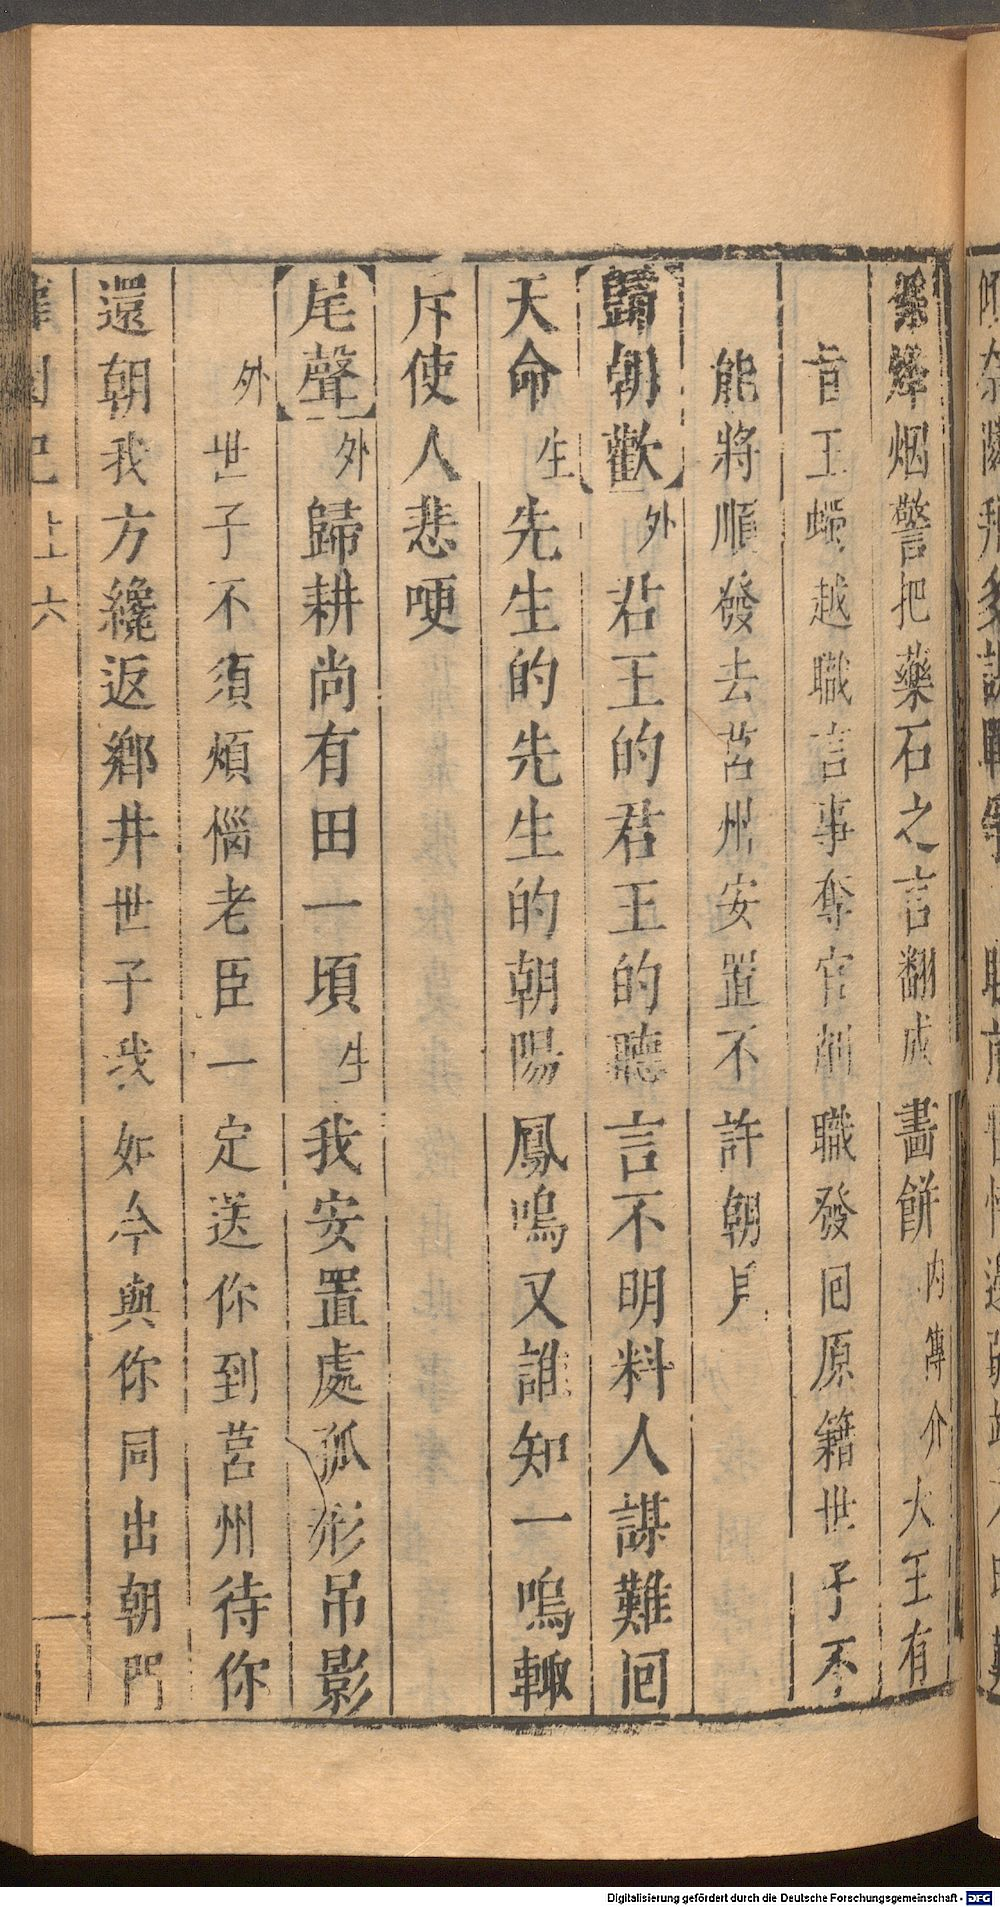 烽烟警把藥石之言翻成畵餅内傳介大王有
旨王蠋越職言事奪官削職發回原籍世子不
能將順發去莒州安置不許朝見
歸朝歡外君王的君王的聽言不明料人謀難回
天命生先生的先生的朝陽鳳鳴又誰知一鳴輙
斥使人悲哽
尾聲外歸耕尚有田一頃生我安置處孤形吊影
外世子不須煩惱老臣一定送你到莒州待你
還朝我方纔返鄉井世子我如今與你同出朝門
記上六
Digitalisierung gefördert durch die Deutsche Forschungsgemeinschaft - DFG